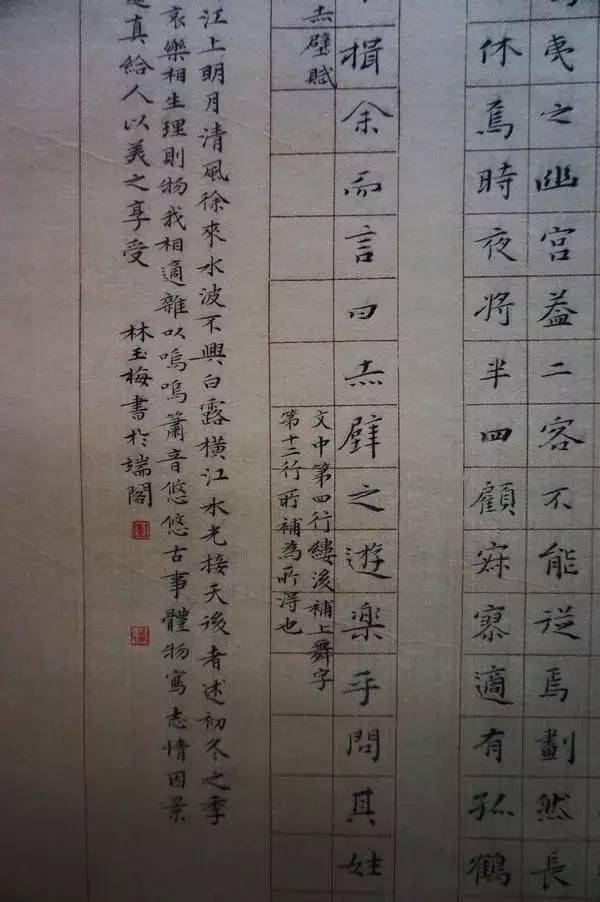 夷之幽宮蓋二客不能從焉劃然長
休焉時夜將半四顧寂寥適有孤鶴
揖余而言曰赤壁之遊楽乎問其姓
赤壁賦
文中第四行縷後補上舞字
第十二行所補為所得也
江上明月清風徐來水波不興白露橫江水光接天後者述初冬之季
哀樂相生理則物我相適雜以嗚嗚簫音悠悠古事體物寫志情因景
真給人以美之享受
林玉梅書於端閣